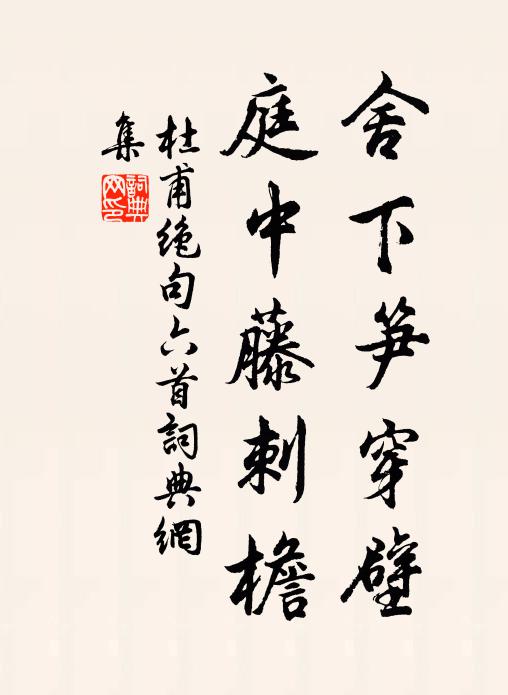 舍下笋穿壁
庭中藤刺檐
杜甫绝句六首詞典網
集
詞典
网印